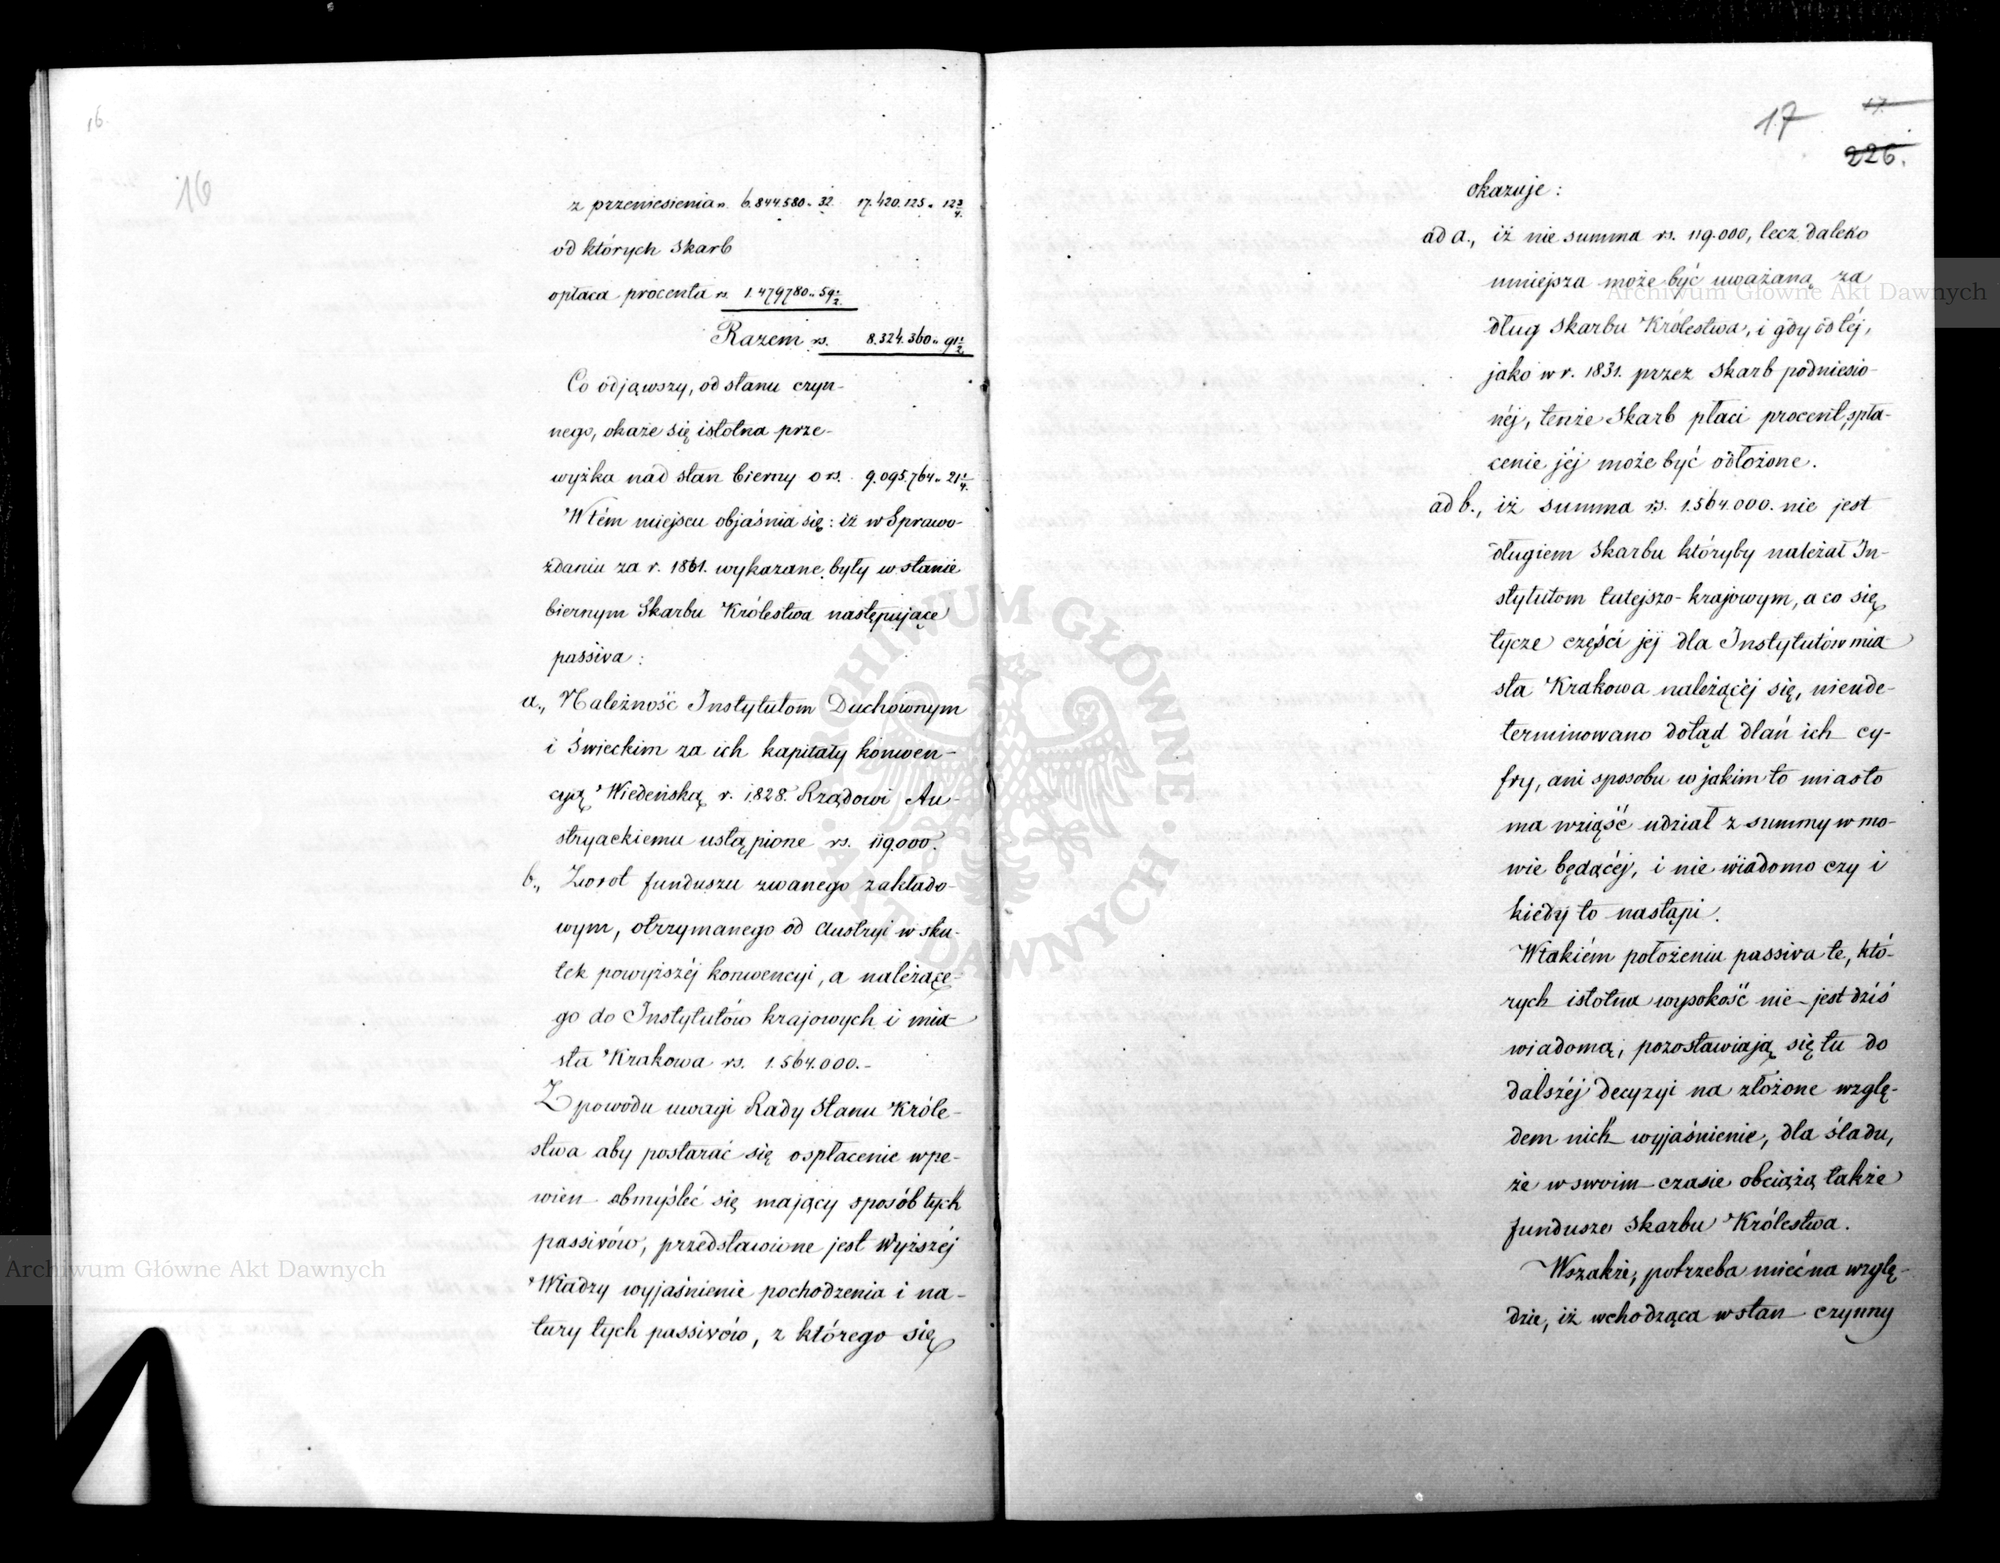 16.
16
z przeniesienia " 6.844.580 " 32. 17.420.125 " 12 3/4.
od których Skarb
opłaca procenta rs. 1.479780 " 59 1/2.
Razem rs. 8.324.360 " 91 1/2.
Co odjąwszy, od stanu czyn-
nego, okaże się istotna prze-
wyżka nad stan bierny o rs. 9.095.764 " 21 1/4.
W tém miejscu objaśnia się: iż w Sprawo-
zdaniu za r. 1861. wykazane były w stanie
biernym Skarbu Królestwa następujące
passiva:
a., Należność Instytutom Duchownym
i Świeckim za ich kapitały konwen-
cyą Wiedeńską r. 1828. Rządowi Au-
stryackiemu ustąpione rs. 119.000.
b., Zwrot funduszu zwanego zakłado-
wym, otrzymanego od Austryi w sku-
tek powyższéj konwencyi, a należące-
go do Instytutów krajowych i mia-
sta Krakowa rs. 1.564.000.-
Z powodu uwagi Rady Stanu Króle-
stwa aby postarać się o spłacenie w pe-
wien obmyśleć się mający sposób tych
passivów, przedstawione jest Wyższéj
Władzy wyjaśnienie pochodzenia i na-
tury tych passivów, z którego się
17
17.
226.
okazuje:
ad a., iż nie summa rs. 119.000, lecz daleko
mniejsza może być uważaną za
dług Skarbu Królestwa, i gdy od téj,
jako w r. 1831. przez Skarb podniesio-
néj, tenże Skarb płaci procent, spła-
cenie jéj może być odłożone.
ad b., iż summa rs. 1.564.000. nie jest
długiem Skarbu któryby należał In-
stytutom tutejszo-krajowym, a co się
tycze części jéj dla Instytutów mia-
sta Krakowa należącéj się, niende-
terminowano dotąd dlań ich cy-
fry, ani sposobu w jakim to miasto
ma wziąść udział z summy w mo-
wie będącéj, i nie wiadomo czy i
kiedy to nastąpi.
W takiém położeniu passiva te, któ-
rych istotna wysokość nie jest dziś
wiadomą, pozostawiają się tu do
dalszéj decyzyi na złożone wzglę-
dem nich wyjaśnienie, dla śladu,
że w swoim czasie obciążą także
fundusze Skarbu Królestwa.
Wszakże, potrzeba mieć na wzglę-
dzie, iż wchodząca w stan czynny
Archiwum Główne Akt Dawnych
Archiwum Główne Akt Dawnych
ARCHIWUM GŁÓWNE
AKT DAWNYCH